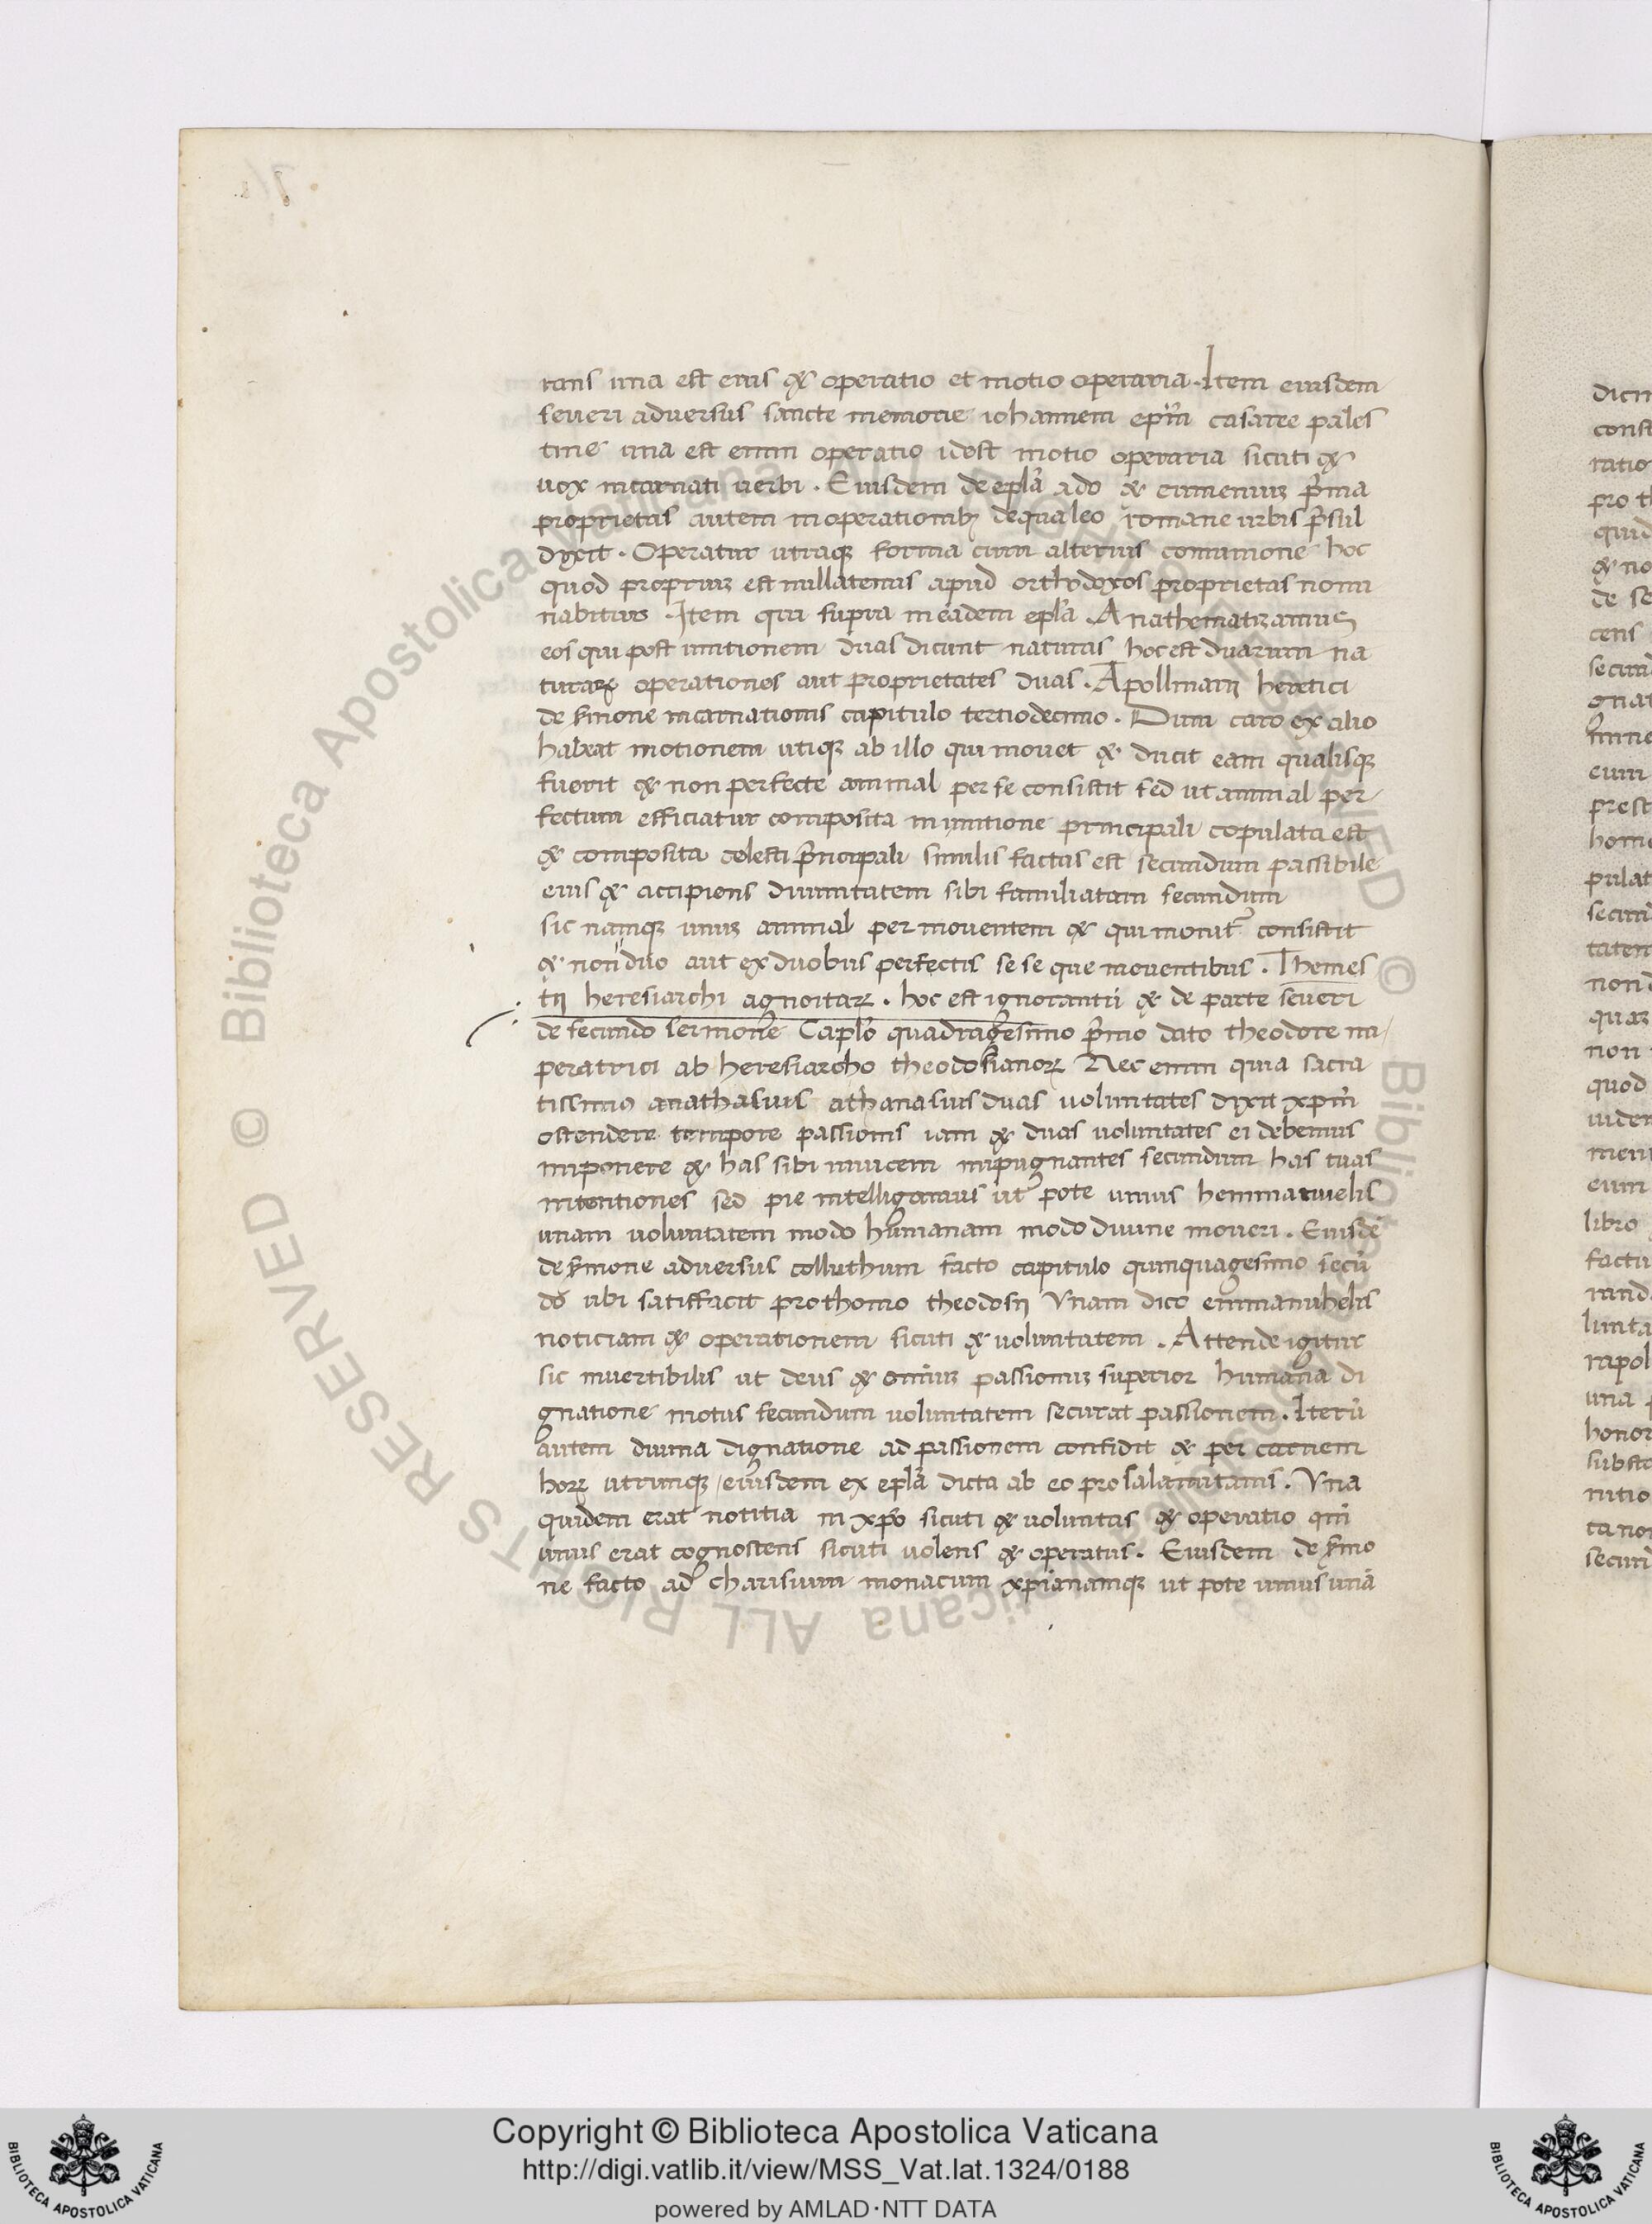 rans una est eius & operatio et motio operaria. Item eiusdem
seueri aduersus sancte memorie iohannem ep̅m̅ cesaree pales
tine una est enim operatio idest motio operaria sicuti &
uox incarnati uerbi. Eiusdem de epl̅a ado & eumenius p̅ma
proprietas autem in operationibꝫ de qua leo romane urbis p̅sul
dixit. Operatur utraqꝫ forma cum alterius comunione hoc
quod propriuꝫ est nullatenus apud orthodoxos proprietas nomi
nabitur. Item qui supra in eadem epl̅a. Anathematizamus
eos qui post unitionem duas dicunt naturas hoc est duarum na
turaꝝ operationes aut proprietates duas. Apollinarij heretici
de s̅mone incarnationis capitulo tertiodecimo. Dum caro ex alio
habeat motionem utiqꝫ ab illo qui mouet & ducit eam qualisqꝫ
fuerit & non perfecte animal per se consistit sed ut animal per
fectum efficiatur composita in unitione principali copulata est
& composita celesti p̅ncipali similis factus est secundum passibile
eius & accipiens diuinitatem sibi familiatam secundum
sic namqꝫ unuꝫ animal per mouentem & qui monit᷑ consistit
& non duo aut ex duobus perfectis se se que mouentibus. Themes
tij heresiarchi agnoitaꝝ. hoc est ignorantiū & de parte seueri
de secundo sermone Capl̅o quadragesimo p̅mo dato theodore im
peratrici ab heresiarcho theodosianoꝝ Nec enim quia sacra
tissimus anathasius athanasius duas uoluntates dixit xp̅m̅
ostendere tempore passionis iam & duas uoluntates ei debemus
imponere & has sibi inuicem impugnantes secundum has tuas
intentiones sed pie intelligamus ut pote unius hemmanuelis
unam uoluntatem modo humanam modo diuine moueri. Eiusdē
de s̅mone aduersus colluthum facto capitulo quinquagesimo secū
do ubi satisfacit pro thomo theodosij Vnam dico emmanuhelis
noticiam & operationem sicuti & uoluntatem. Attende igitur
sic inuertibilis ut deus & omniuꝫ passionuꝫ superior humana di
gnatione motus secundum uoluntatem securat passionem. Iterū
autem diuina dignatione ad passionem confidit & per carnem
horꝝ utrumqꝫ / eiusdem ex epl̅a dicta ab eo pro salamitanis. Vna
quidem erat notitia in xp̅o sicuti & uoluntas & operatio qm̅
unus erat cognoscens sicuti uolens & operatus. Eiusdem de s̅mo
ne facto ad charisium monacum xp̅ianamqꝫ ut pote unius unā
Copyright © Biblioteca Apostolica Vaticana
http://digi.vatlib.it/view/MSS_Vat.lat.1324/0188
powered by AMLAD·NTT DATA